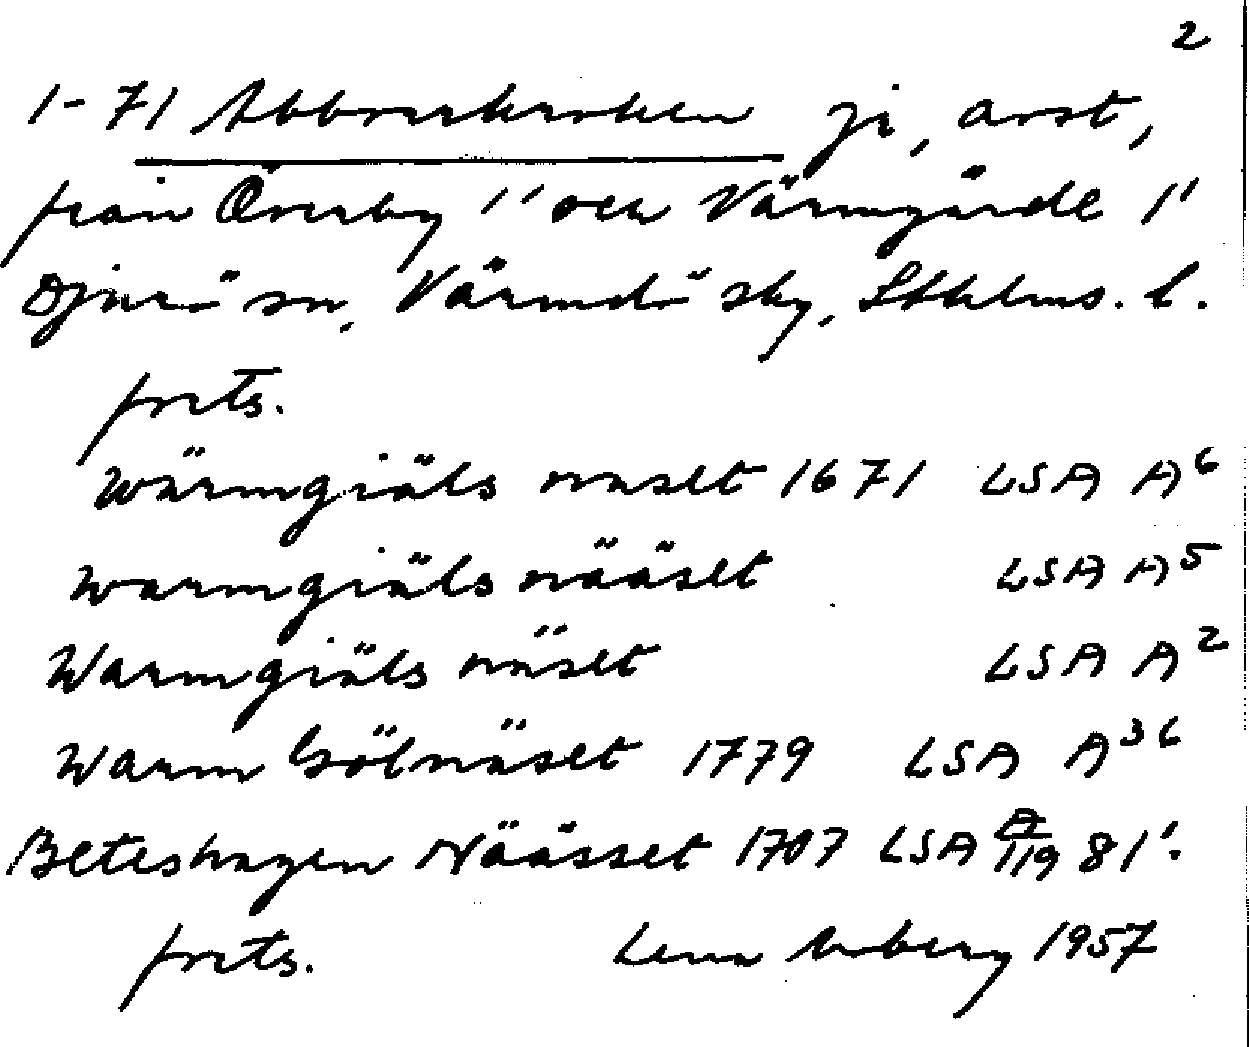 2
1-71 Abborrkroken ji, avst,
från Överby 1' och Värmgärde 1'
Djurö sn, Värmdö sky, Sthlms. l.
forts.
Wärmgiäls näset 1671 LSA A6
warmgiäls nääset LSA A5
Warmgiäls näset LSA A2
Warm Gölnäset 1779 LSA A36
Beteshagen Näässet 1707 LSA A/119 81'.
forts. Lena 1957